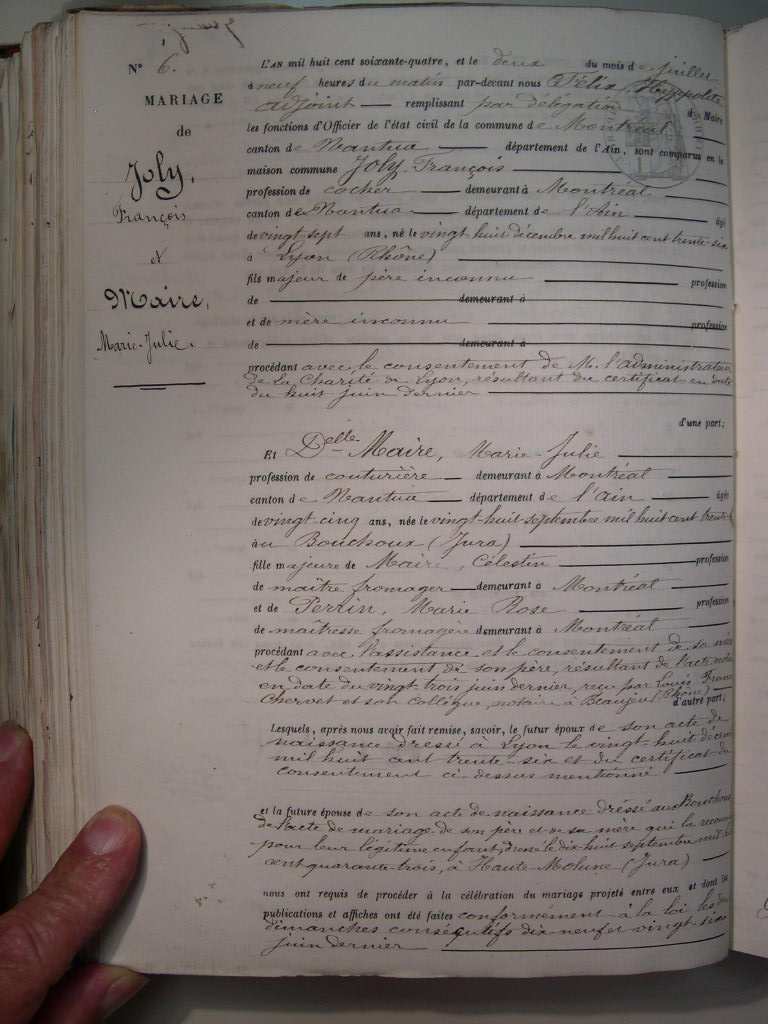 N° 6.
MARIAGE
de
Joly,
François
et
Maire,
Marie-Julie.
L'AN mil huit cent soixante-quatre, et le deux du mois de juillet
à neuf heures du matin par-devant nous Félix, Hyppolite
adjoint remplissant par délégation du Maire
les fonctions d'Officier de l'état civil de la commune de Montréal
canton de Nantua département de l'Ain, sont comparus en la
maison commune Joly, François
profession de cocher demeurant à Montréal
canton de Nantua département de l'Ain âgé
de vingt sept ans, né le vingt huit décembre mil huit cent trente-six
à Lyon (Rhône)
fils majeur de père inconnu profession
de demeurant à
et de mère inconnu profession
de demeurant à
procédant avec le consentement de M. l'administrateur
de la Charité de Lyon, résultant du certificat en date
du huit juin dernier
d'une part;
Et Delle Maire, Marie-Julie
profession de couturière demeurant à Montréal
canton de Nantua département de l'Ain âgée
de vingt cinq ans, née le vingt-huit septembre mil huit cent trente-
au Bouchoux (Jura)
fille majeure de Maire, Célestin profession
de maître fromager demeurant à Montréal
et de Perrin, Marie Rose profession
de maîtresse fromagère demeurant à Montréal
procédant avec l'assistance et le consentement de sa mère
et le consentement de son père, résultant de l'acte
en date du vingt trois juin dernier, reçu par Louis
Chervet et son collègue, notaire à Beaujeu (Rhône)
d'autre part;
Lesquels, après nous avoir fait remise, savoir, le futur époux de son acte de
naissance dressé à Lyon le vingt huit décembre
mil huit cent trente-six et du certificat du
consentement ci-dessus mentionné
et la future épouse de son acte de naissance dressé aux Bouchoux
de l'acte de mariage de son père et de sa mère qui la
pour leur légitime enfant, dressé le dix huit septembre mil
cent quarante-trois, à Haute-Molune (Jura)
nous ont requis de procéder à la célébration du mariage projeté entre eux et dont les
publications et affiches ont été faites conformément à la loi les deux
dimanches consécutifs dix-neuf et vingt six
juin dernier